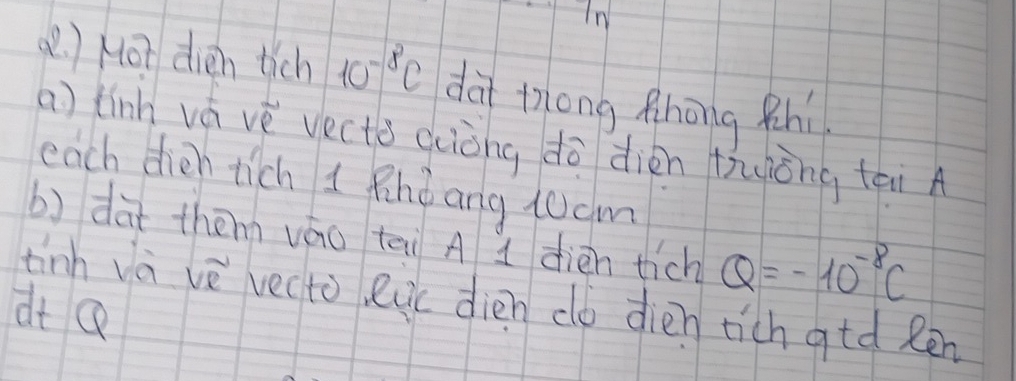 2.) Một điện tích 10⁻⁸C đặt trong không khí.
a) tính và vẽ vectơ cường độ điện trường tại A
cách điện tích 1 khoảng 10cm
b) đặt thêm vào tại A 1 điện tích Q = - 10⁻⁸C
tính và vẽ vectơ lực điện do điện tích q tđ lên
đt Q